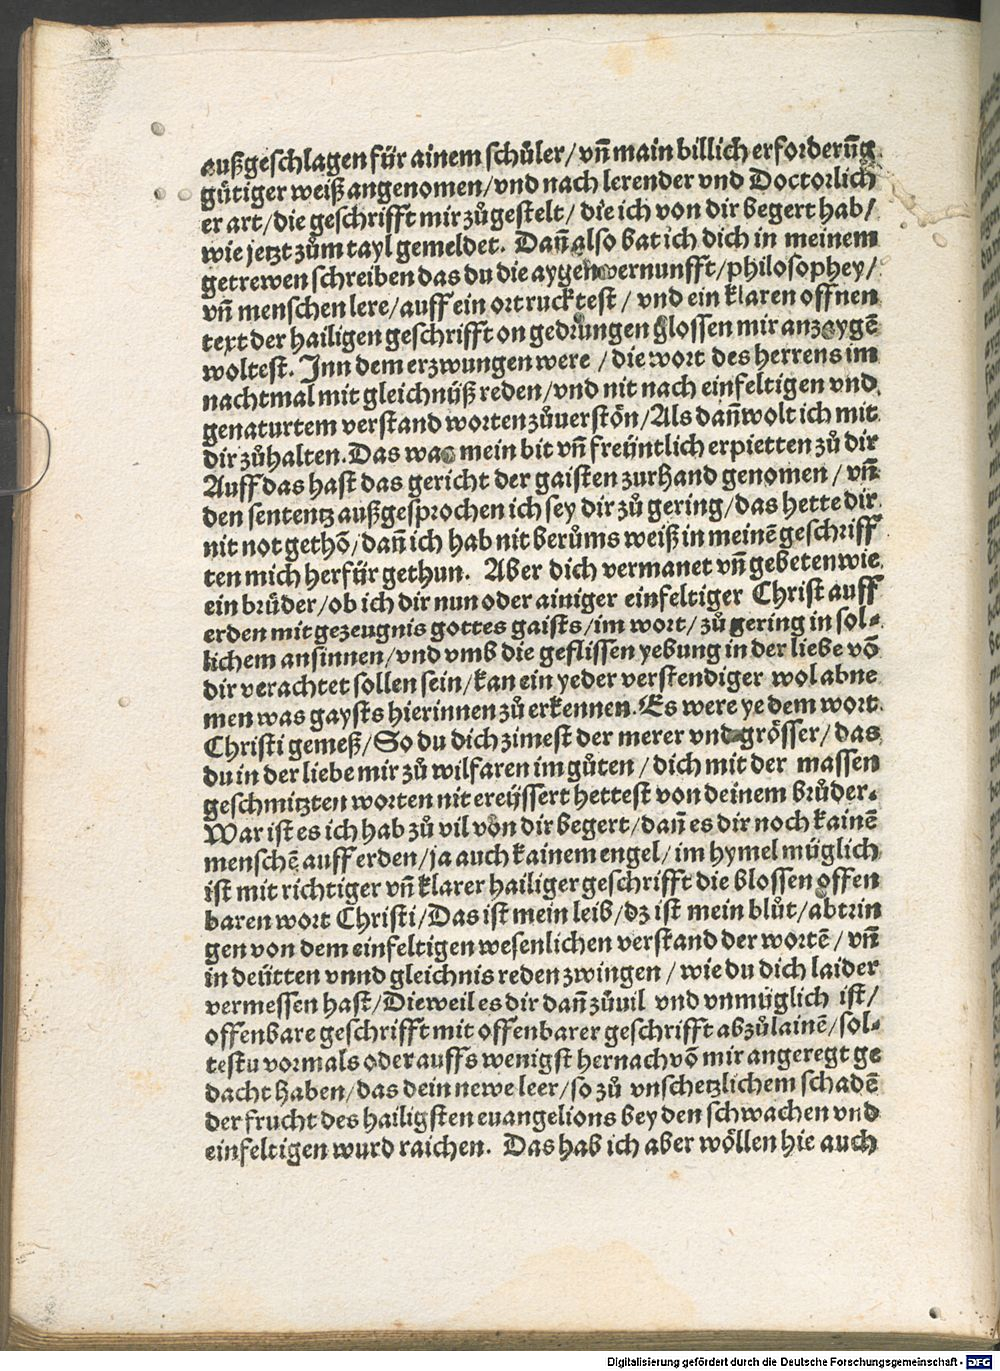 außgeschlagen für ainem schůler/ vñ main billich erforderũg
gůtiger weiß angenomen/ vnd nach lerender vnd Doctorlich
er art/ die geschrifft mir zůgestelt/ die ich von dir begert hab/
wie jetzt zům tayl gemeldet. Dañ also bat ich dich in meinem
getrewen schreiben das du die aygen vernunfft/ philosophey/
vñ menschen lere/ auff ein ort rucktest/ vnd ein klaren offnen
text der hailigen geschrifft on gedrungen glossen mir anzaygẽ
woltest. Inn dem erzwungen were/ die wort des herrens im
nachtmal mit gleichnüß reden/ vnd nit nach einfeltigen vnd
genaturtem verstand worten zůuerstön/ Als dañ wolt ich mit
dir zůhalten. Das was mein bit vñ freüntlich erpietten zů dir
Auff das hast das gericht der gaisten zur hand genomen/ vñ
den sententz außgesprochen ich sey dir zů gering/ das hette dir
nit not gethõ/ dañ ich hab nit berůms weiß in meinẽ geschriff
ten mich herfür gethun. Aber dich vermanet vñ gebeten wie
ein brůder/ ob ich dir nun oder ainiger einfeltiger Christ auff
erden mit gezeugnis gottes gaists/ im wort/ zů gering in sol⸗
lichem ansinnen/ vnd vmb die geflissen yebung in der liebe võ
dir verachtet sollen sein/ kan ein yeder verstendiger wol abne
men was gaysts hierinnen zů erkennen. Es were ye dem wort
Christi gemeß/ So du dich zimest der merer vnd grösser/ das
du in der liebe mir zů wilfaren im gůten/ dich mit der massen
geschmitzten worten nit ereüssert hettest von deinem brůder.
War ist es ich hab zů vil von dir begert/ dañ es dir noch kainẽ
menschẽ auff erden/ ja auch kainem engel/ im hymel müglich
ist mit richtiger vñ klarer hailiger geschrifft die blossen offen
baren wort Christi/ Das ist mein leib/ dz ist mein blůt/ abtrin
gen von dem einfeltigen wesenlichen verstand der wortẽ/ vñ
in deütten vnnd gleichnis reden zwingen/ wie du dich laider
vermessen hast/ Dieweil es dir dañ zůuil vnd vnmüglich ist/
offenbare geschrifft mit offenbarer geschrifft abzůlainẽ/ sol⸗
testu vormals oder auffs wenigst hernach võ mir angeregt ge
dacht haben/ das dein newe leer/ so zů vnschetzlichem schadẽ
der frucht des hailigsten euangelions bey den schwachen vnd
einfeltigen wurd raichen. Das hab ich aber wöllen hie auch
Digitalisierung gefördert durch die Deutsche Forschungsgemeinschaft - DFG